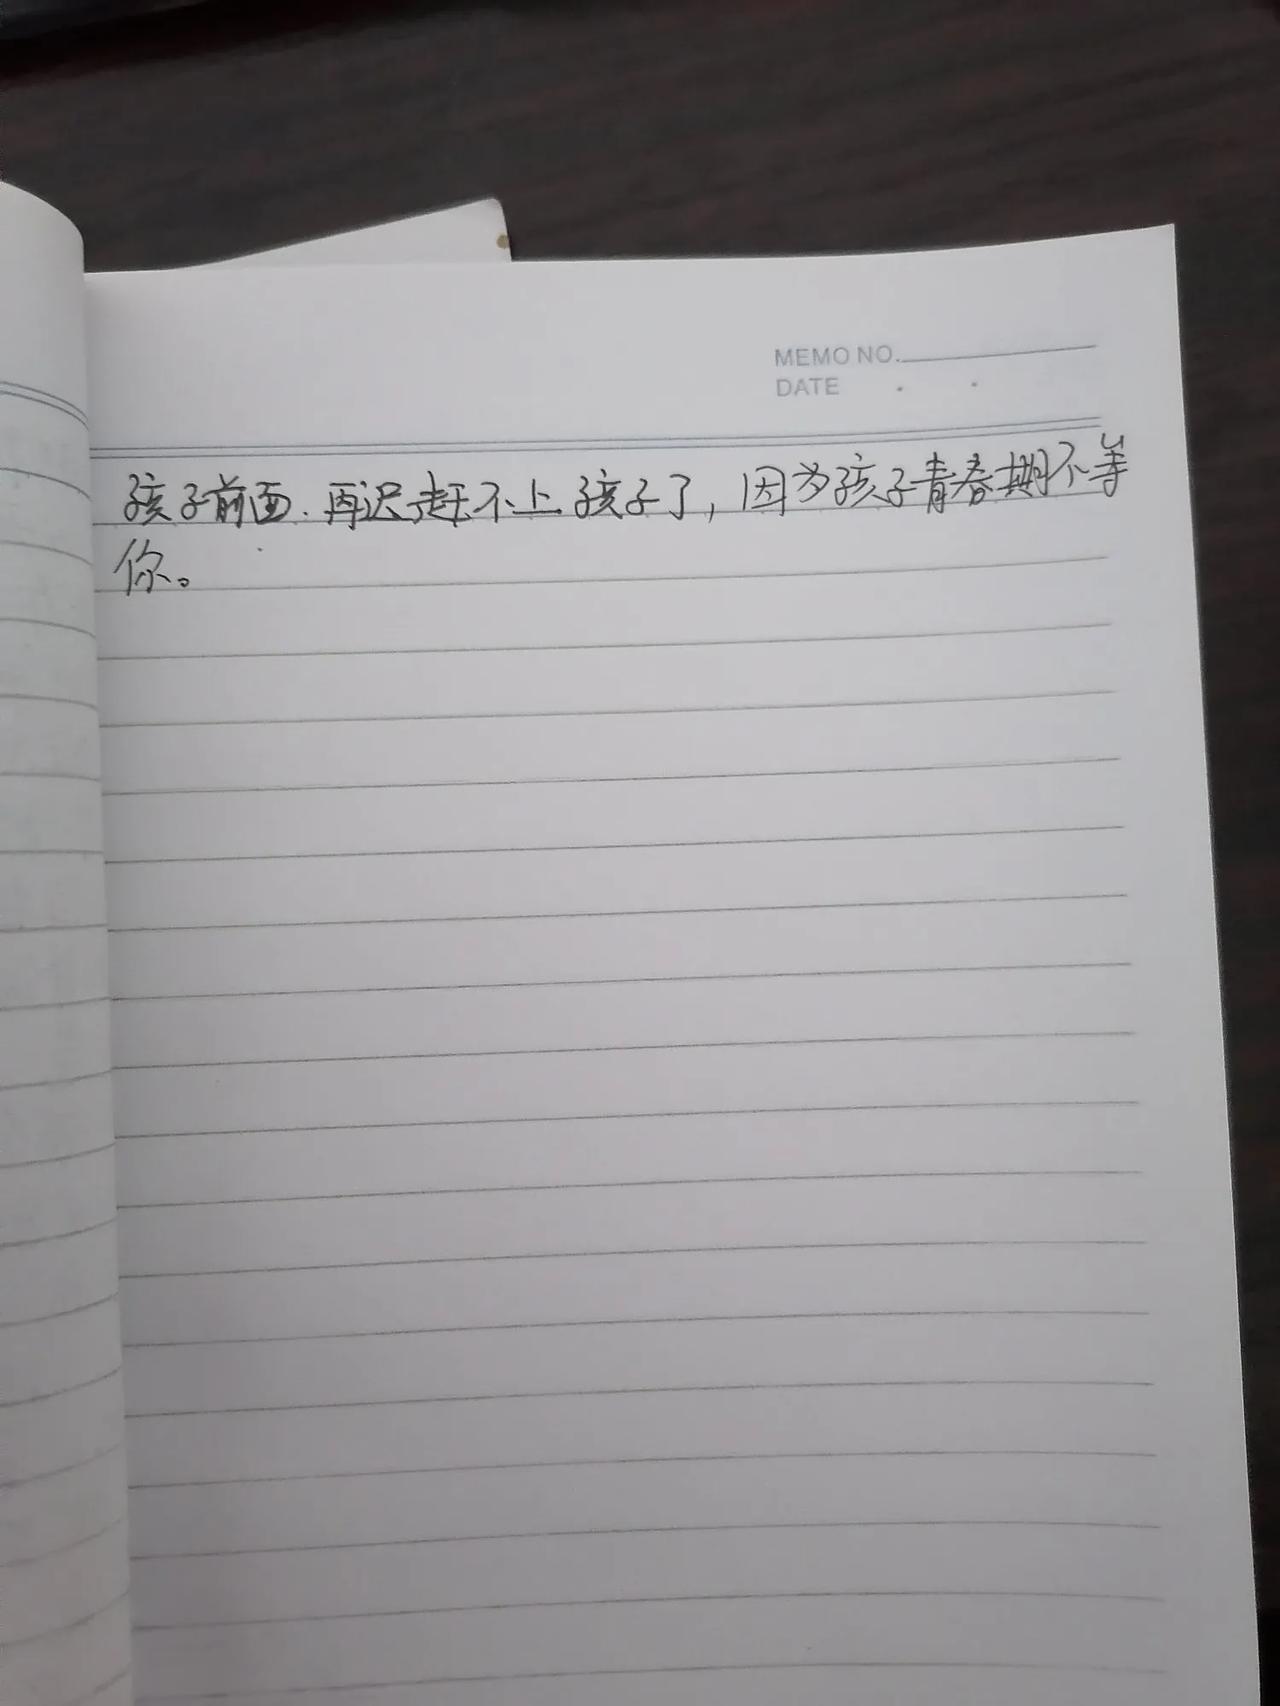 MEMO NO.
DATE . .
孩子前面.再迟赶不上孩子了,因为孩子青春期不等
你。